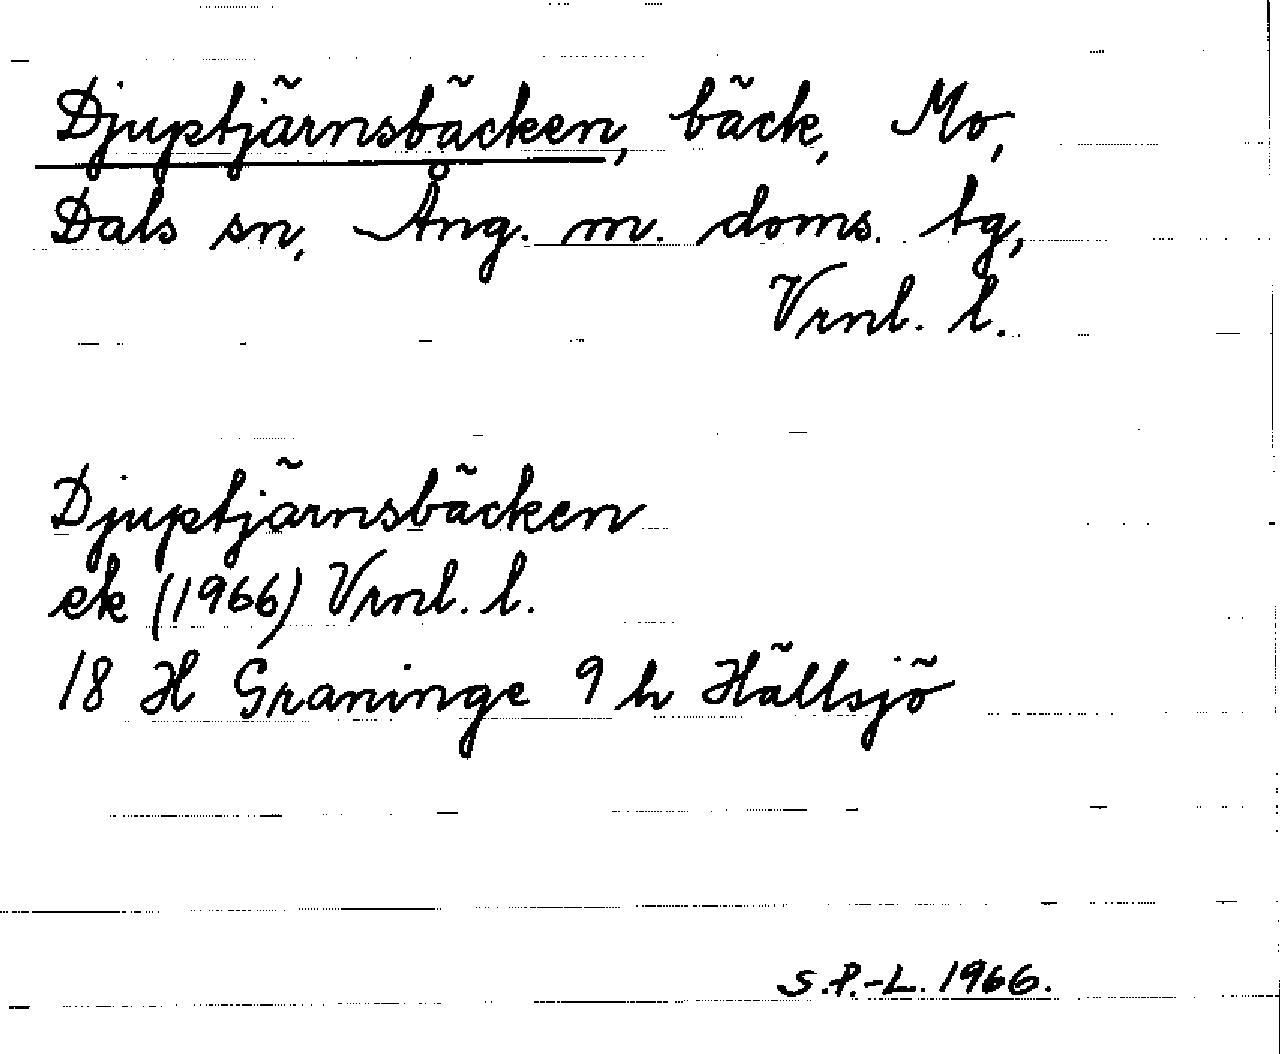 Djuptjärnsbäcken, bäck, Mo,
Dals sn, Ång. m. doms. tg,
Vrnl. l.
Djuptjärnsbäcken
ek (1966) Vrnl. l.
18 H Graninge 9 h Hällsjö
S.P.-L. 1966.